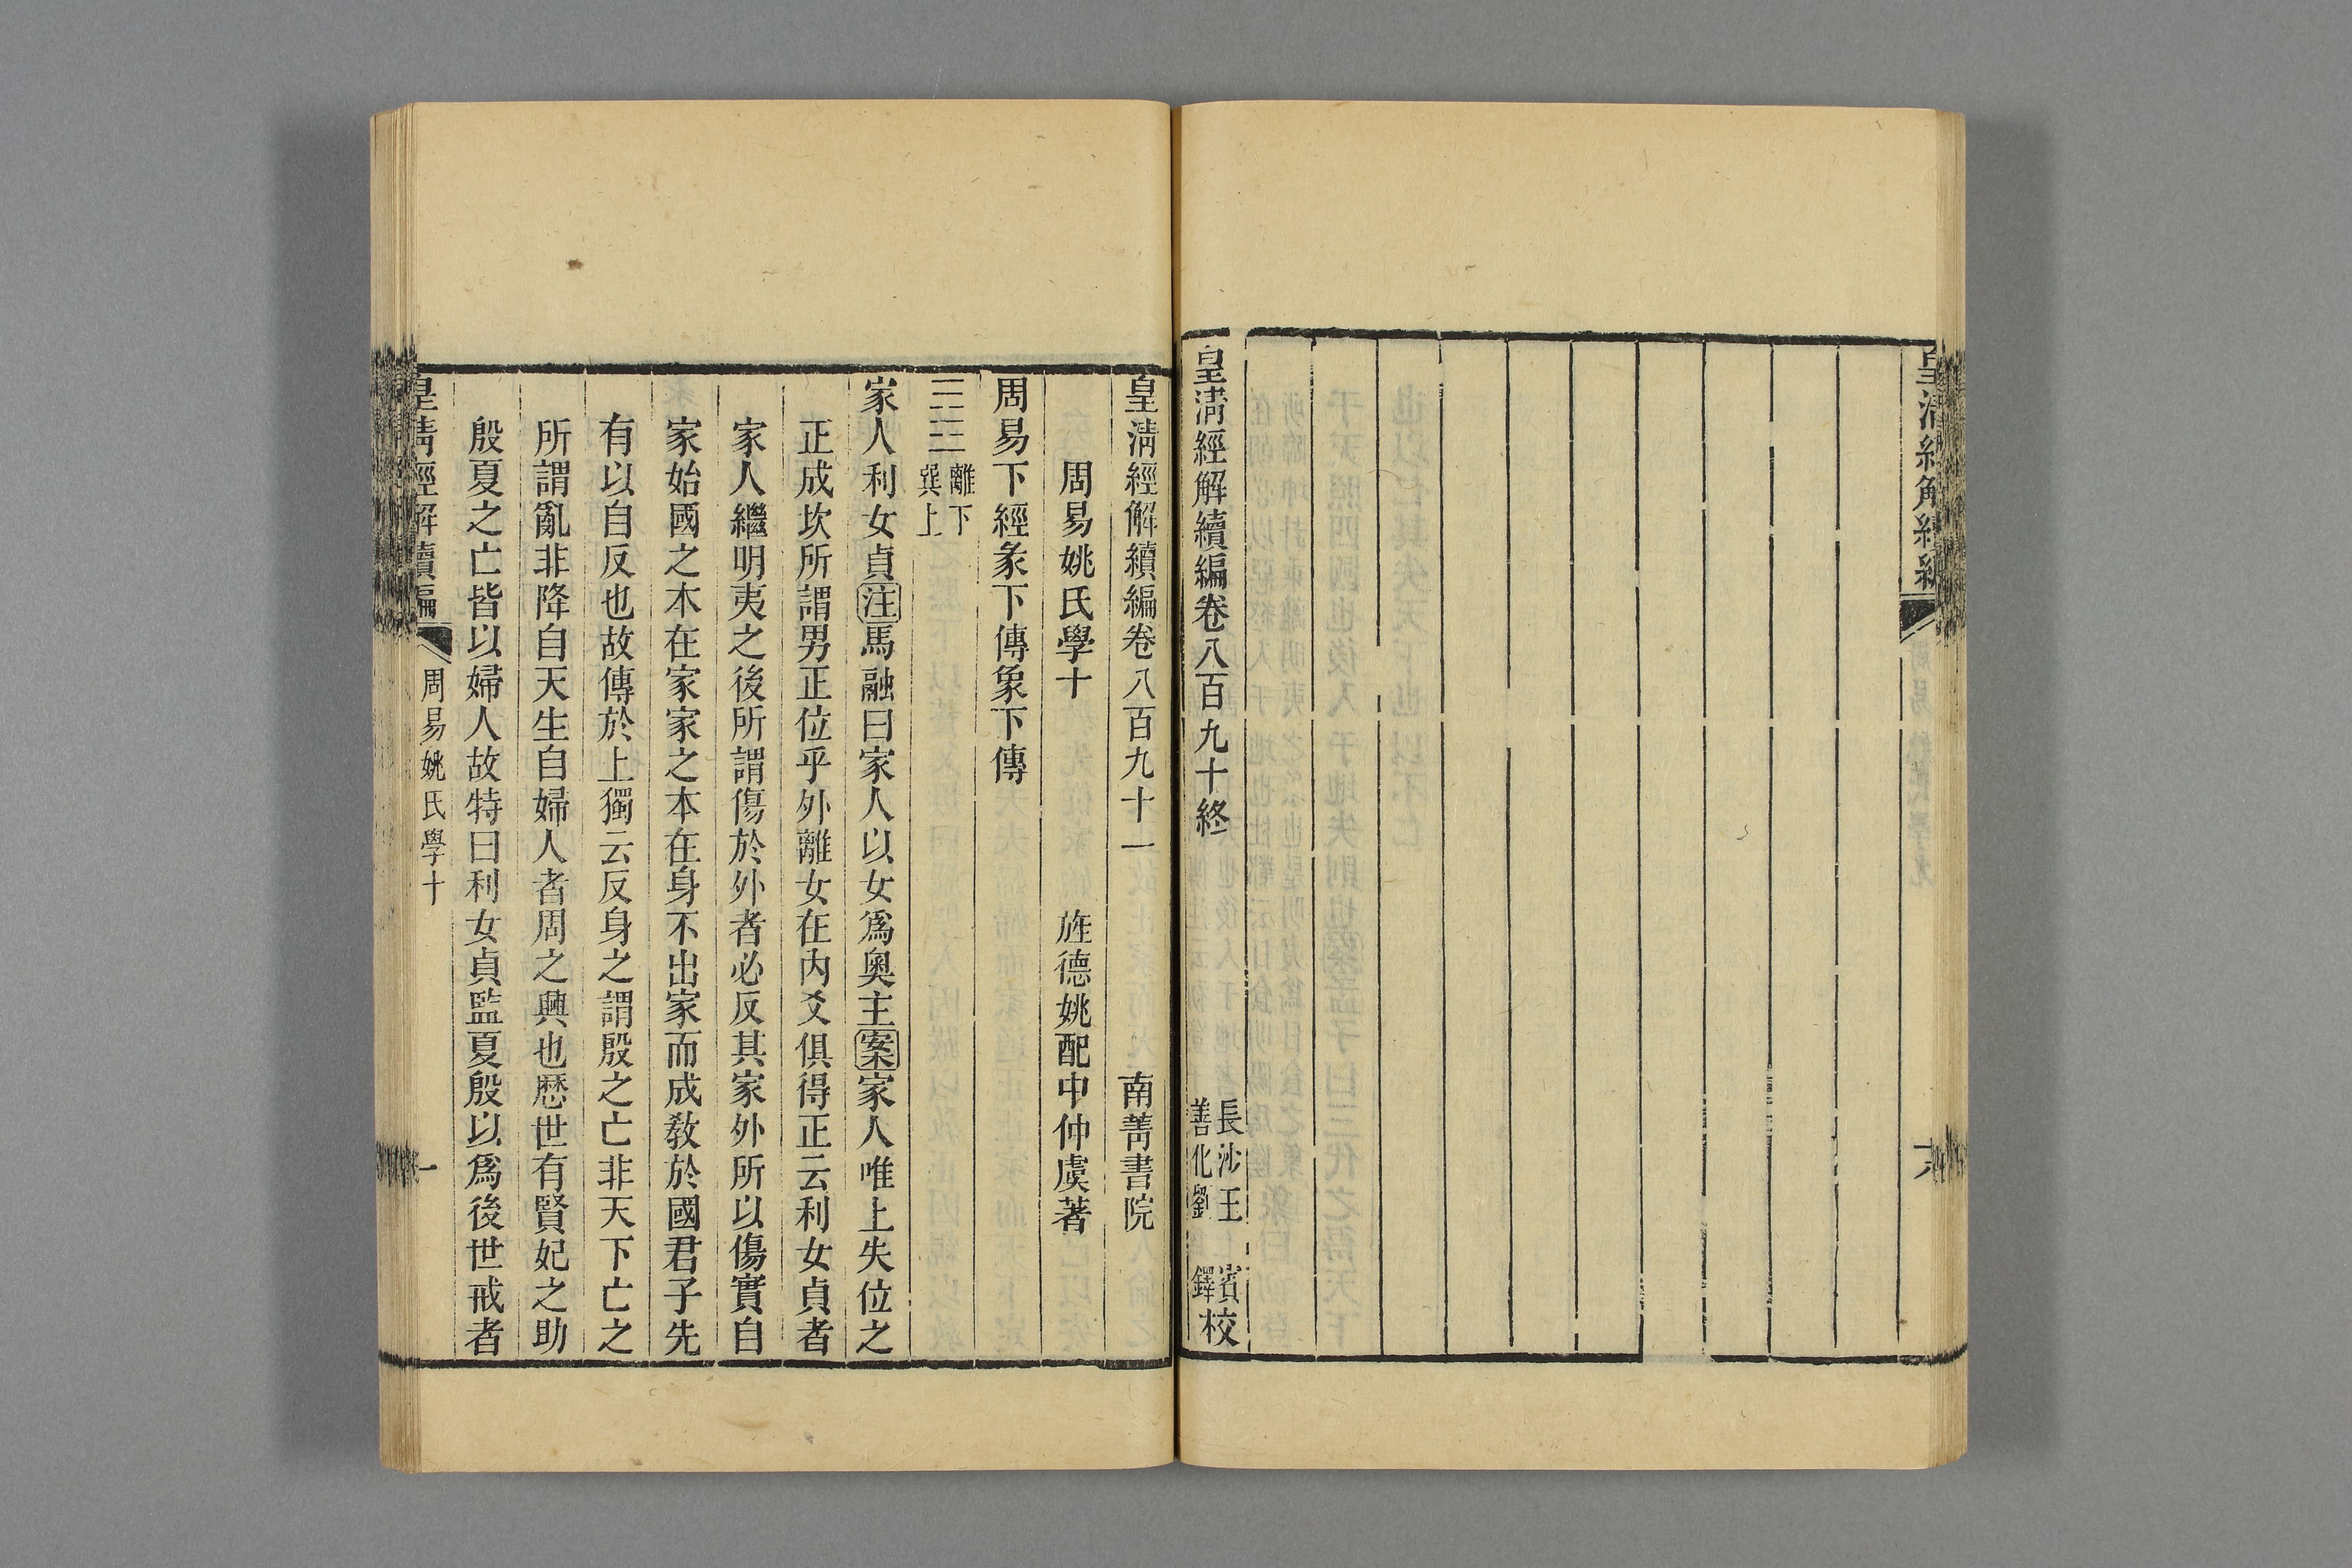 皇清經解續編
六
皇清經解續編卷八百九十終
長沙王　賓
善化劉　鐸
校
皇淸經解續編卷八百九十一
南菁書院
周易姚氏學十
旌德姚配中仲虞著
周易下經彖下傳象下傳
離下
巽上
家人利女貞注馬融曰家人以女爲奧主案家人唯上失位之
正成坎所謂男正位乎外離女在內爻俱得正云利女貞者
家人繼明夷之後所謂傷於外者必反其家外所以傷實自
家始國之木在家家之本在身不出家而成敎於國君子先
有以自反也故傳於上獨云反身之謂殷之亡非天下亡之
所謂亂非降自天生自婦人者周之興也歷世有賢妃之助
殷夏之亡皆以婦人故特曰利女貞監夏殷以爲後世戒者
皇淸經解續編
周易姚氏學十
一